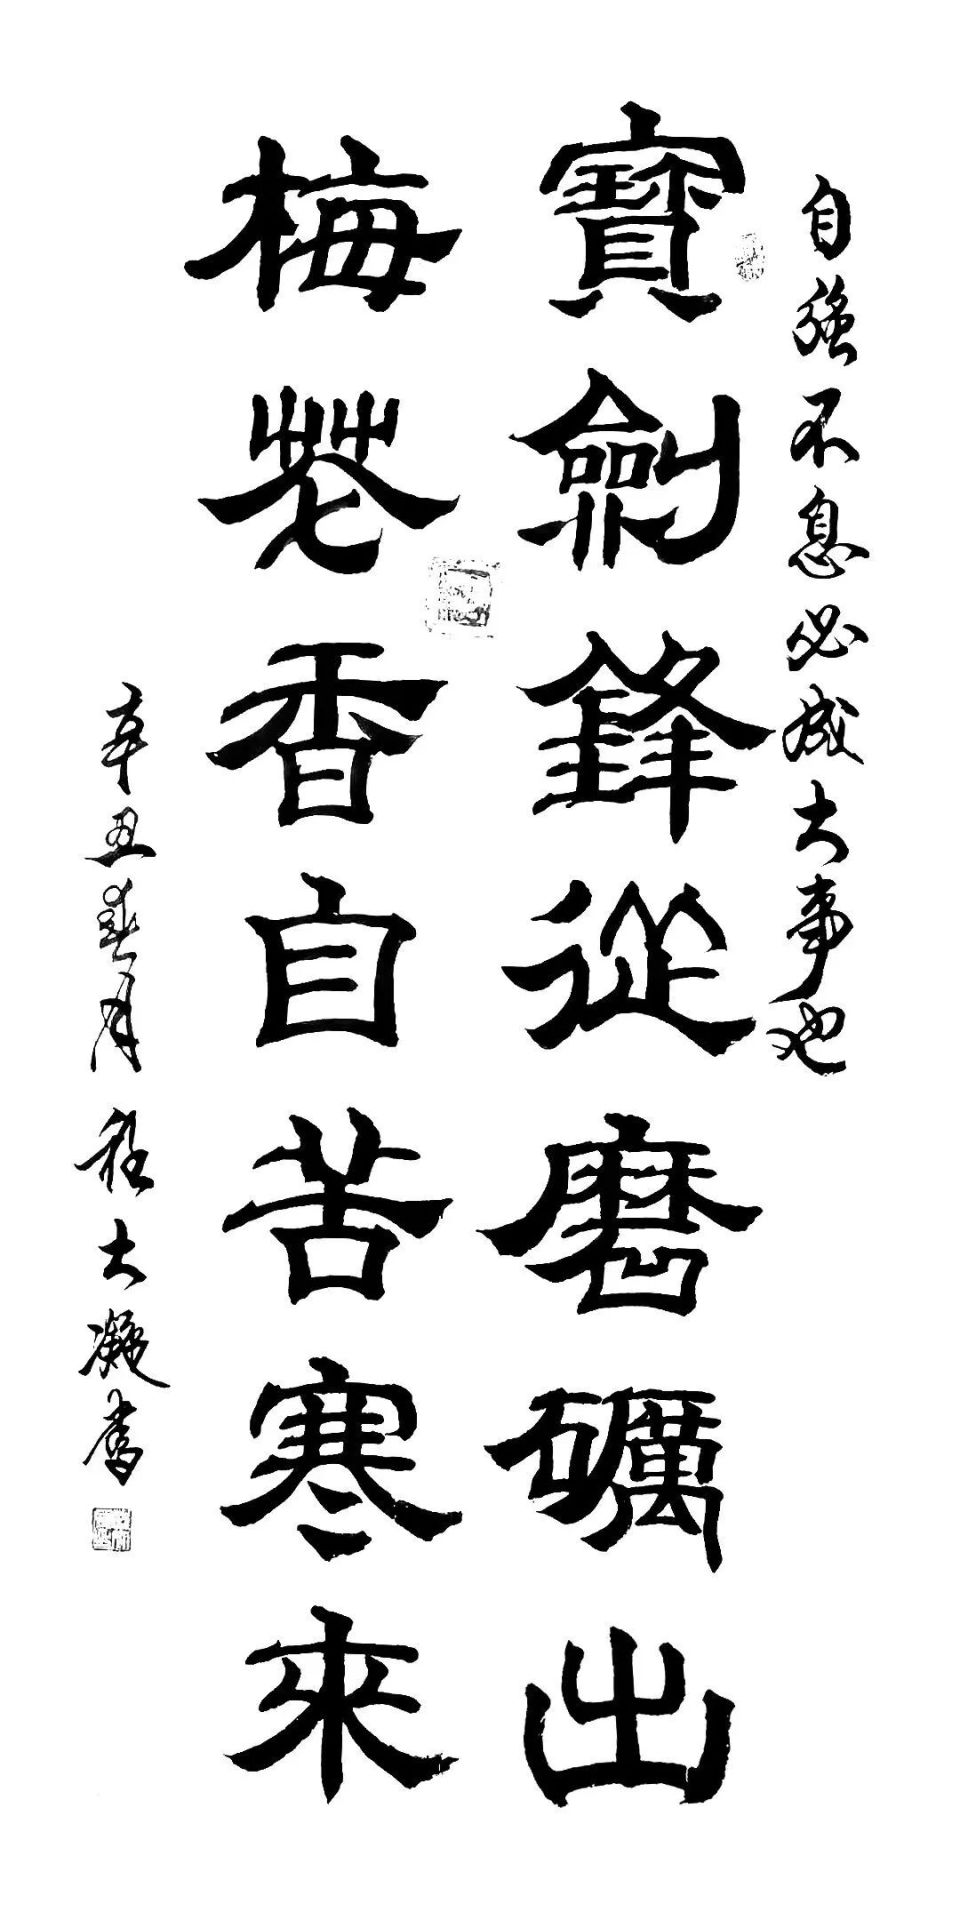 自強不息必成大事也
寶劍鋒從磨礪出
梅花香自苦寒來
辛丑春月程大凝書